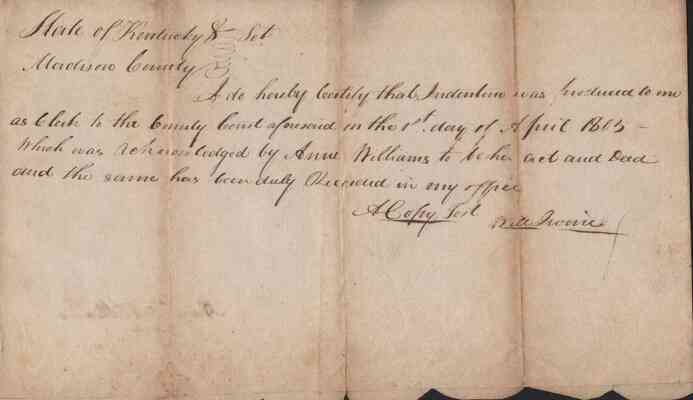 State of Kentucky & Sct
Madison County
I do hereby Certify that Indenture was produced to me
as Clerk to the County Court aforesaid in the 1st. day of April 1805 -
Which was acknowledged by Anne Williams to be her act and Deed
and the same has been duly Recorded in my office
A Copy Test
Will Irvine